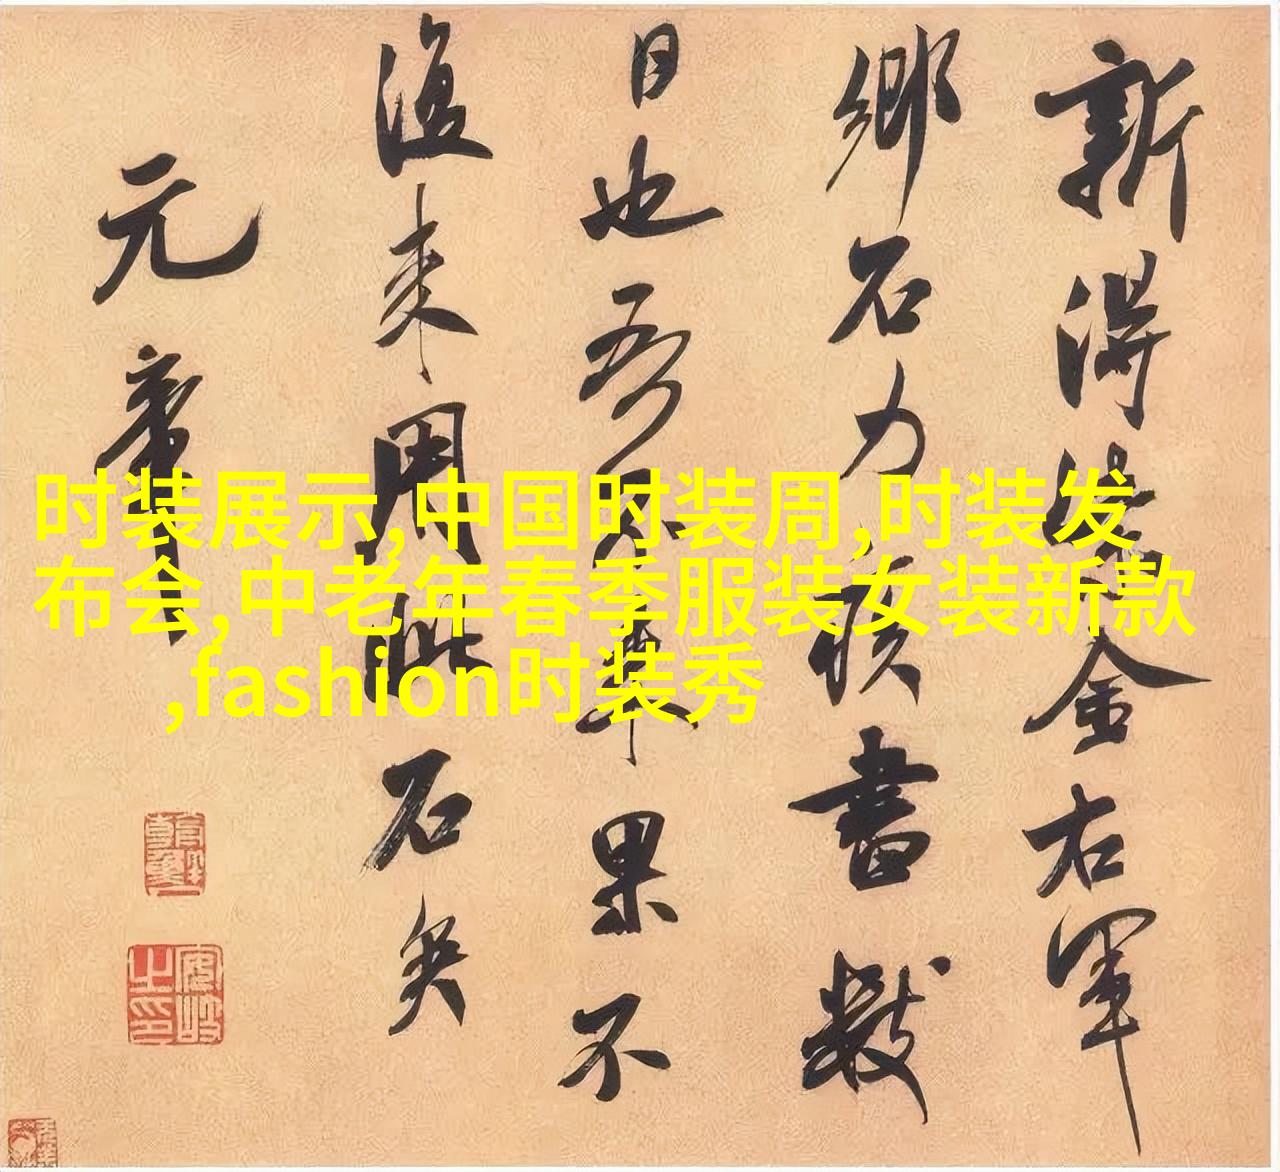 新得紫金右軍
鄉石力疾書數
日也吾不来果不
復来用此石矣
元章
时装展示,中国时装周,时装发
布会,中老年春季服装女装新款
,fashion时装秀